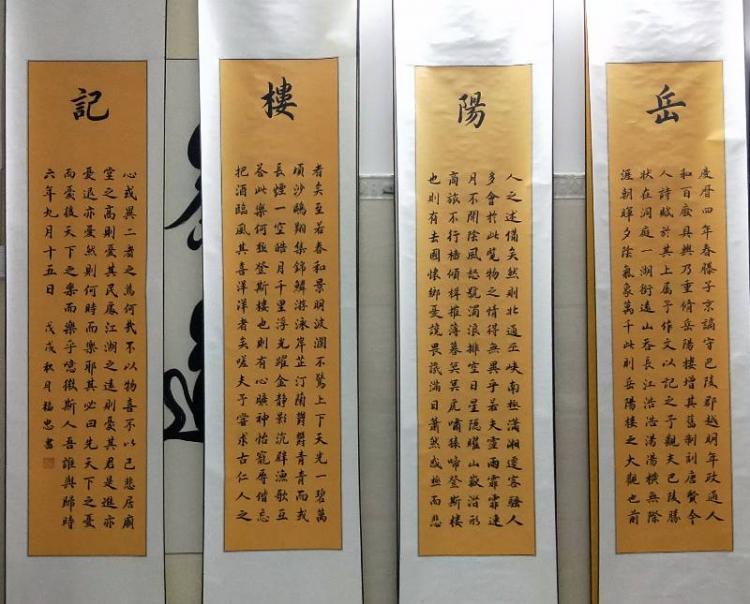 岳
慶曆四年春滕子京謫守巴陵郡越明年政通人
和百廢具興乃重脩岳陽樓增其舊制刻唐賢今
人詩賦於其上屬予作文以記之予觀夫巴陵勝
狀在洞庭一湖銜遠山吞長江浩浩湯湯橫無際
涯朝暉夕陰氣象萬千此則岳陽樓之大觀也前
陽
人之述備矣然則北通巫峽南極瀟湘遷客騷人
多會於此覽物之情得無異乎若夫霪雨霏霏連
月不開陰風怒號濁浪排空日星隱耀山嶽潛形
商旅不行檣傾楫摧薄暮冥冥虎嘯猿啼登斯樓
也則有去國懷鄉憂讒畏譏滿目蕭然感極而悲
樓
者矣至若春和景明波瀾不驚上下天光一碧萬
頃沙鷗翔集錦鱗游泳岸芷汀蘭鬱鬱青青而或
長煙一空皓月千里浮光躍金靜影沉璧漁歌互
答此樂何極登斯樓也則有心曠神怡寵辱偕忘
把酒臨風其喜洋洋者矣嗟夫予嘗求古仁人之
記
心或異二者之為何哉不以物喜不以己悲居廟
堂之高則憂其民處江湖之遠則憂其君是進亦
憂退亦憂然則何時而樂耶其必曰先天下之憂
而憂後天下之樂而樂乎噫微斯人吾誰與歸時
六年九月十五日 戊戌秋月福忠書